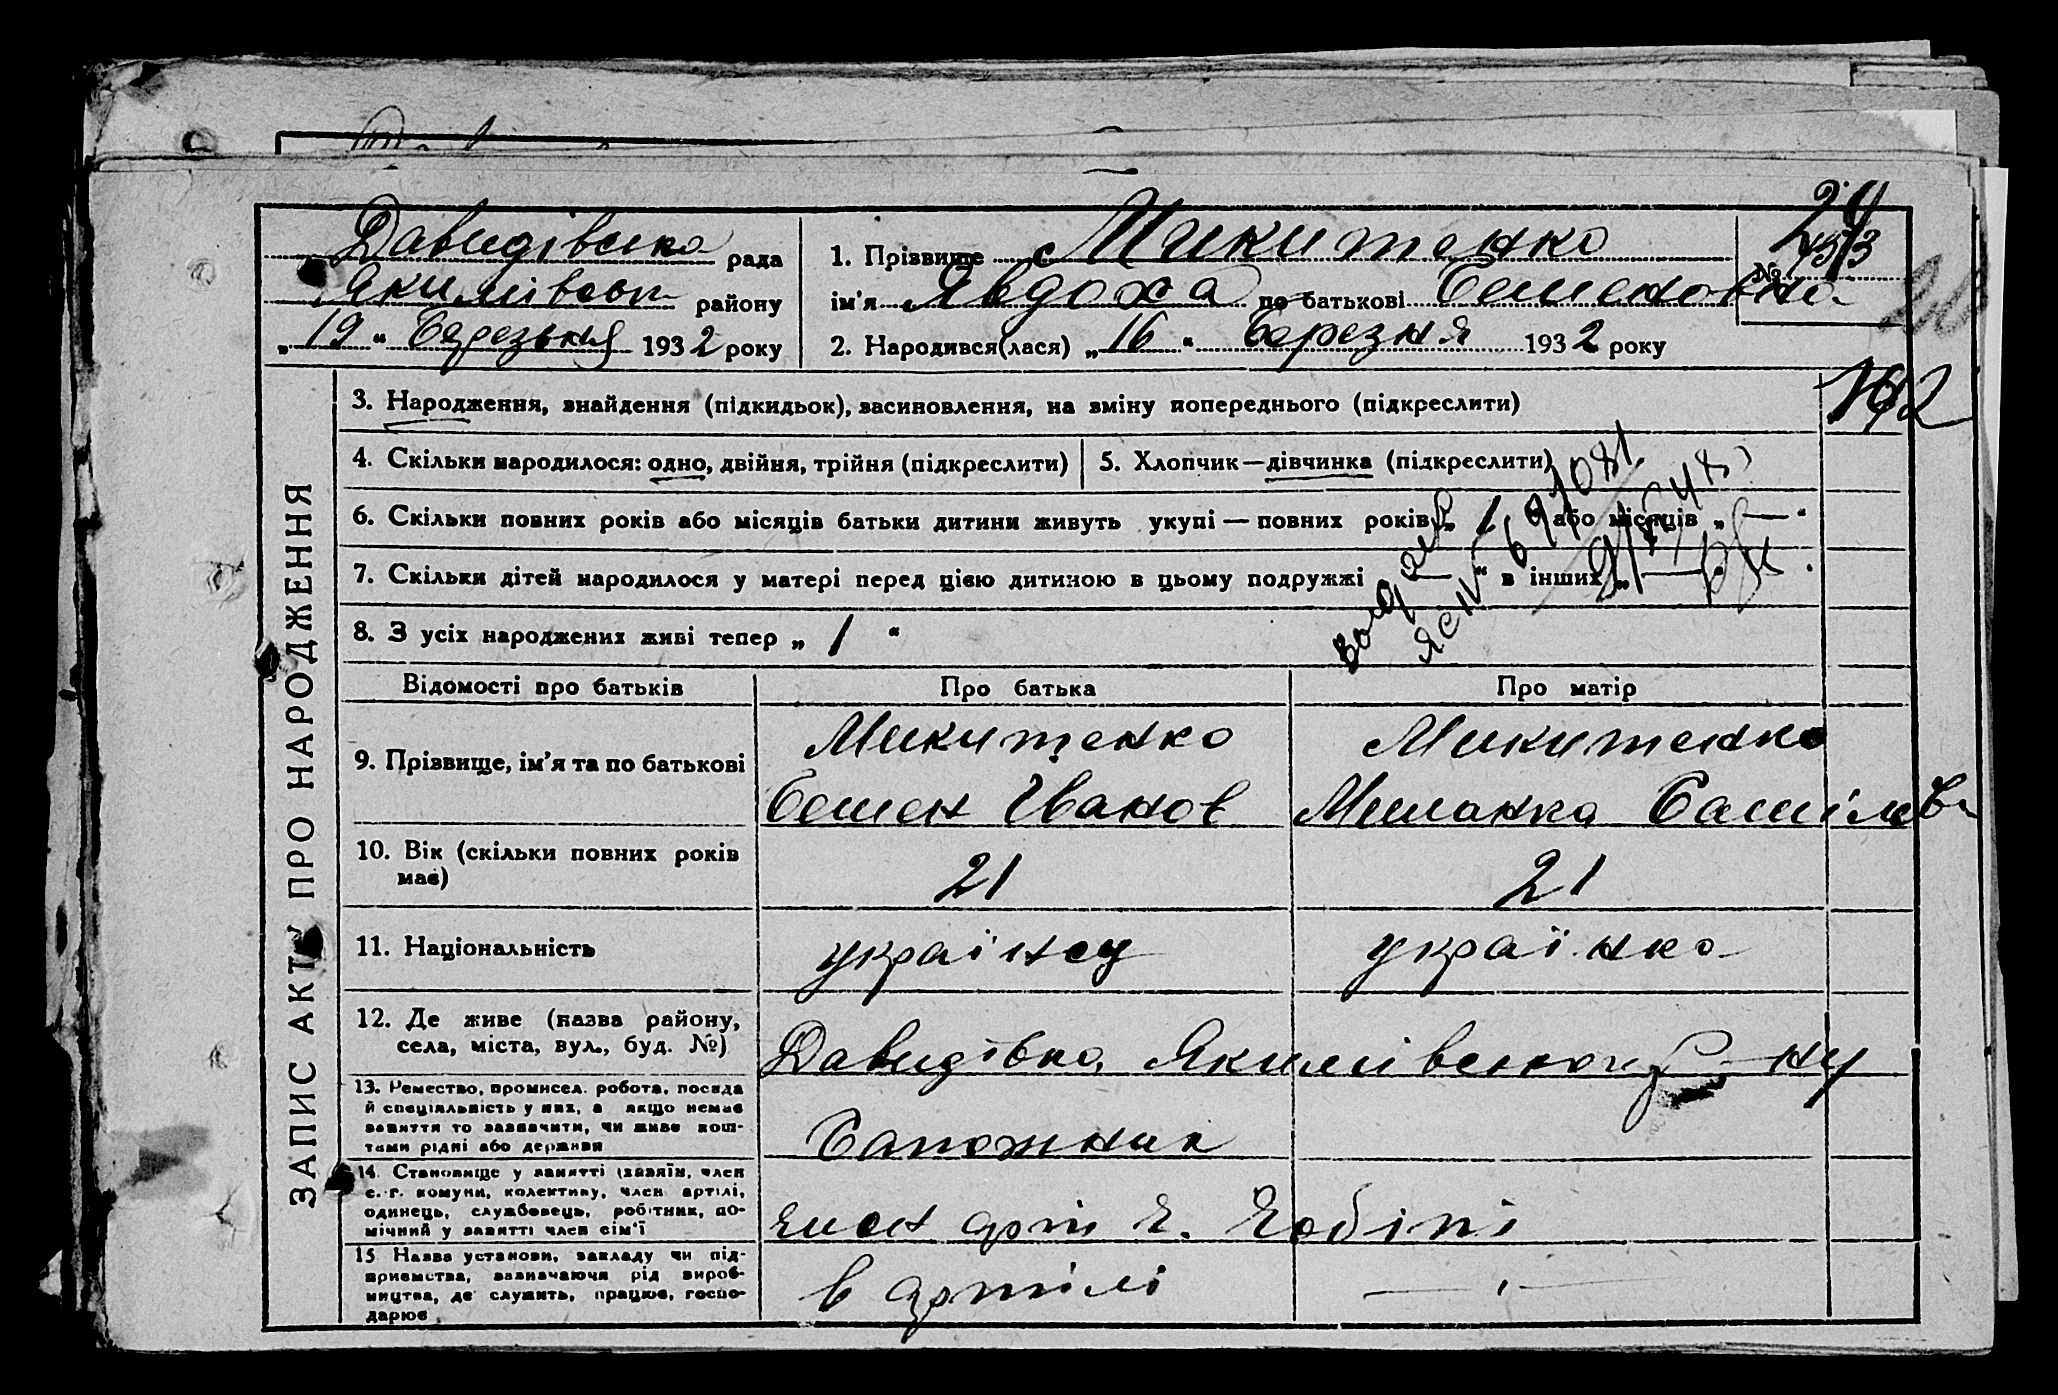 Давидівська рада
Якимівськ району
„19" Березьня 1932 року
1. Прізвище Микитенко
ім'я Явдоха по батькові Семеновна
2. Народився(лася) „16" Березня 1932 року
№
ЗАПИС АКТУ ПРО НАРОДЖЕННЯ
3. Народження, знайдення (підкидьок), засиновлення, на зміну попереднього (підкреслити)
4. Скільки народилося: одно, двійня, трійня (підкреслити)
5. Хлопчик—дівчинка (підкреслити)
6. Скільки повних років або місяців батьки дитини живуть укупі — повних років „1" або місяців „—"
7. Скільки дітей народилося у матері перед цією дитиною в цьому подружжі — " в інших „—"
8. З усіх народжених живі тепер „1"
Відомості про батьків
Про батька
Про матір
9. Прізвище, ім'я та по батькові
Микитенко
Семен Іванов
Микитенко
10. Вік (скільки повних років має)
21
21
11. Національність
українец
українка
12. Де живе (назва району,
села, міста, вул., буд. №)
Давидівка, Якимівського
13. Ремество, промисел. робота, посада
й спеціяльність у них, а якщо немає
заняття то зазначити, чи живе кош-
тами рідні або держави
Сапожник
14. Становище у занятті (хазяїн, член
с.-г. комуни, колективу, член артілі,
одинець, службовець, робітник, по-
мічний у занятті член сім'ї
член арт
15 Назва установи, закладу чи під-
приємства, зазначаючи рід вироб-
ництва, де служить, працює, госпо-
дарює
в артілі